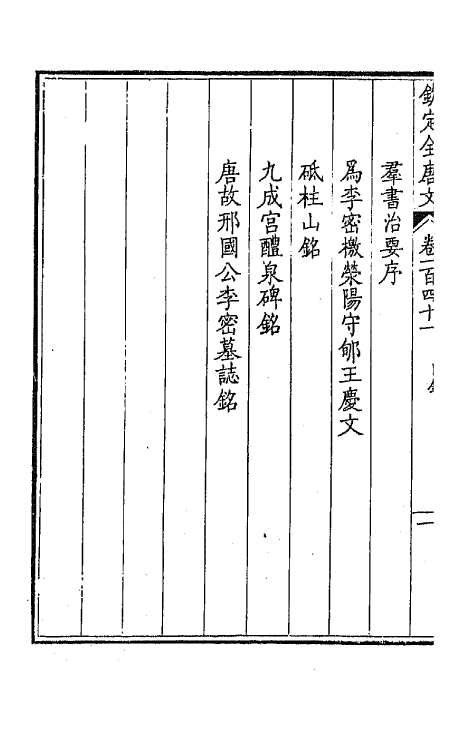 欽定全唐文 卷一百四十一 目錄 二
羣書治要序
爲李密檄滎陽守郇王慶文
砥柱山銘
九成宫醴泉碑銘
唐故邢國公李密墓誌銘